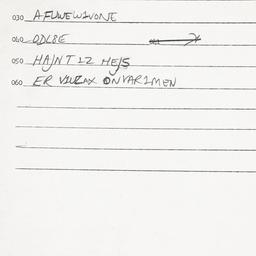 030 AFUWEWIVONE
040 ODL8E
050 HAJNTIZ HEJS
060 ER VILZAX ONVARIMEN